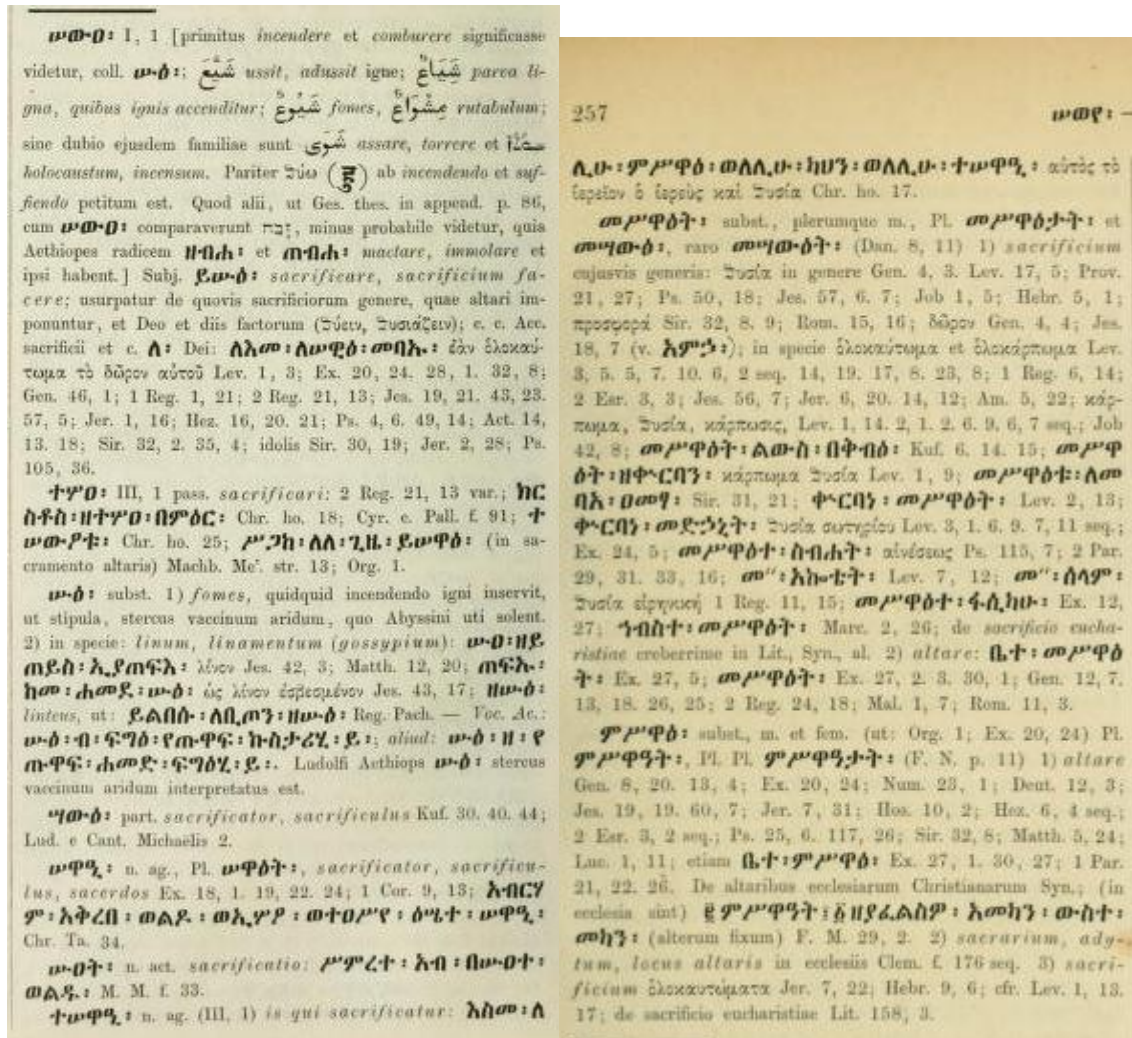 ሠውዐ፡ I, 1 [primitus incendere et comburere significasse
videtur, coll. ሡዕ፡; شَيَّعَ ussit, adussit igne; شِيَاعٌ parva li-
gna, quibus ignis accenditur; شَيُوعٌ fomes, مِشْوَاعٌ rutabulum;
sine dubio ejusdem familiae sunt شَوَى assare, torrere et
holocaustum, incensum. Pariter ϑύω ab incendendo et suf-
fiendo petitum est. Quod alii, ut Ges. thes. in append. p. 86,
cum ሠውዐ፡ comparaverunt זבח, minus probabile videtur, quia
Aethiopes radicem ዘብሐ፡ et ጠብሐ፡ mactare, immolare et
ipsi habent.] Subj. ይሡዕ፡ sacrificare, sacrificium fa-
cere; usurpatur de quovis sacrificiorum genere, quae altari im-
ponuntur, et Deo et diis factorum (ϑύειν, ϑυσιάζειν); c. c. Acc.
sacrificii et c. ለ፡ Dei: ለእመ፡ ለሠዊዕ፡ መባኡ፡ ἐὰν ὁλοκαύ-
τωμα τὸ δῶρον αὐτοῦ Lev. 1, 3; Ex. 20, 24. 28, 1. 32, 8;
Gen. 46, 1; 1 Reg. 1, 21; 2 Reg. 21, 13; Jes. 19, 21. 43, 23.
57, 5; Jer. 1, 16; Hez. 16, 20. 21; Ps. 4, 6. 49, 14; Act. 14,
13. 18; Sir. 32, 2. 35, 4; idolis Sir. 30, 19; Jer. 2, 28; Ps.
105, 36.
ተሦዐ፡ III, 1 pass. sacrificari: 2 Reg. 21, 13 var.; ክር
ስቶስ፡ ዘተሦዐ፡ በምዕር፡ Chr. ho. 18; Cyr. c. Pall. f. 91; ተ
ሠውዖቱ፡ Chr. ho. 25; ሥጋከ፡ ለለ፡ ጊዜ፡ ይሠዋዕ፡ (in sa-
cramento altaris) Machb. Me'. str. 13; Org. 1.
ሡዕ፡ subst. 1) fomes, quidquid incendendo igni inservit,
ut stipula, stercus vaccinum aridum, quo Abyssini uti solent.
2) in specie: linum, linamentum (gossypium): ሡዐ፡ ዘይ
ጠይስ፡ ኢያጠፍእ፡ λίνον Jes. 42, 3; Matth. 12, 20; ጠፍኡ፡
ከመ፡ ሐመደ፡ ሡዕ፡ ὡς λίνον ἐσβεσμένον Jes. 43, 17; ዘሡዕ፡
linteus, ut: ይልበሱ፡ ለቢጦን፡ ዘሡዕ፡ Reg. Pach. — Voc. Ae.:
ሡዕ፡ ብ፡ ፍግዕ፡ የጡዋፍ፡ ኩስታሪሂ፡ ይ፡; aliud: ሡዕ፡ ዘ፡ የ
ጡዋፍ፡ ሐመድ፡ ፍግዕሂ፡ ይ፡. Ludolfi Aethiops ሡዕ፡ stercus
vaccinum aridum interpretatus est.
ሣውዕ፡ part. sacrificator, sacrificulus Kuf. 30. 40. 44;
Lud. e Cant. Michaëlis 2.
ሠዋዒ፡ n. ag., Pl. ሠዋዕት፡, sacrificator, sacrificu-
lus, sacerdos Ex. 18, 1. 19, 22. 24; 1 Cor. 9, 13; አብርሃ
ም፡ አቅረበ፡ ወልዶ፡ ወኢሦዖ፡ ወተዐሥየ፡ ዕሤተ፡ ሠዋዒ፡
Chr. Ta. 34.
ሡዐት፡ n. act. sacrificatio: ሥምረተ፡ አብ፡ በሡዐተ፡
ወልዱ፡ M. M. f. 33.
ተሠዋዒ፡ n. ag. (III, 1) is qui sacrificatur: እስመ፡ ለ
257 ሠወየ፡ —
ሊሁ፡ ምሥዋዕ፡ ወለሊሁ፡ ካህን፡ ወለሊሁ፡ ተሠዋዒ፡ αὐτὸς τὸ
ἱερεῖον ὁ ἱερεὺς καὶ ϑυσία Chr. ho. 17.
መሥዋዕት፡ subst., plerumque m., Pl. መሥዋዕታት፡ et
መሣውዕ፡, raro መሣውዕት፡ (Dan. 8, 11) 1) sacrificium
cujusvis generis: ϑυσία in genere Gen. 4, 3. Lev. 17, 5; Prov.
21, 27; Ps. 50, 18; Jes. 57, 6. 7; Job 1, 5; Hebr. 5, 1;
προσφορά Sir. 32, 8. 9; Rom. 15, 16; δῶρον Gen. 4, 4; Jes.
18, 7 (v. አምኃ፡); in specie ὁλοκαύτωμα et ὁλοκάρπωμα Lev.
3, 5. 5, 7. 10. 6, 2 seq. 14, 19. 17, 8. 23, 8; 1 Reg. 6, 14;
2 Esr. 3, 3; Jes. 56, 7; Jer. 6, 20. 14, 12; Am. 5, 22; κάρ-
πωμα, ϑυσία, κάρπωσις, Lev. 1, 14. 2, 1. 2. 6. 9. 6, 7 seq.; Job
42, 8; መሥዋዕት፡ ልውስ፡ በቅብዕ፡ Kuf. 6. 14. 15; መሥዋ
ዕት፡ ዘቍርባን፡ κάρπωμα ϑυσία Lev. 1, 9; መሥዋዕቱ፡ ለመ
ባአ፡ ዐመፃ፡ Sir. 31, 21; ቍርባነ፡ መሥዋዕት፡ Lev. 2, 13;
ቍርባነ፡ መድኃኒት፡ ϑυσία σωτηρίου Lev. 3, 1. 6. 9. 7, 11 seq.;
Ex. 24, 5; መሥዋዕተ፡ ስብሐት፡ αἰνέσεως Ps. 115, 7; 2 Par.
29, 31. 33, 16; መ″፡ አኰቴት፡ Lev. 7, 12; መ″፡ ሰላም፡
ϑυσία εἰρηνική 1 Reg. 11, 15; መሥዋዕተ፡ ፋሲካሁ፡ Ex. 12,
27; ኅብስተ፡ መሥዋዕት፡ Marc. 2, 26; de sacrificio eucha-
ristiae creberrime in Lit., Syn., al. 2) altare: ቤተ፡ መሥዋዕ
ት፡ Ex. 27, 5; መሥዋዕት፡ Ex. 27, 2. 3. 30, 1; Gen. 12, 7.
13, 18. 26, 25; 2 Reg. 24, 18; Mal. 1, 7; Rom. 11, 3.
ምሥዋዕ፡ subst., m. et fem. (ut: Org. 1; Ex. 20, 24) Pl.
ምሥዋዓት፡, Pl. Pl. ምሥዋዓታት፡ (F. N. p. 11) 1) altare
Gen. 8, 20. 13, 4; Ex. 20, 24; Num. 23, 1; Deut. 12, 3;
Jes. 19, 19. 60, 7; Jer. 7, 31; Hos. 10, 2; Hez. 6, 4 seq.;
2 Esr. 3, 2 seq.; Ps. 25, 6. 117, 26; Sir. 32, 8; Matth. 5, 24;
Luc. 1, 11; etiam ቤተ፡ ምሥዋዕ፡ Ex. 27, 1. 30, 27; 1 Par.
21, 22. 26. De altaribus ecclesiarum Christianarum Syn.; (in
ecclesia sint) ፪ ምሥዋዓት፤ ፩ ዘያፈልስዎ፡ እመካን፡ ውስተ፡
መካን፡ (alterum fixum) F. M. 29, 2. 2) sacrarium, ady-
tum, locus altaris in ecclesiis Clem. f. 176 seq. 3) sacri-
ficium ὁλοκαυτώματα Jer. 7, 22; Hebr. 9, 6; cfr. Lev. 1, 13.
17; de sacrificio eucharistiae Lit. 158, 3.